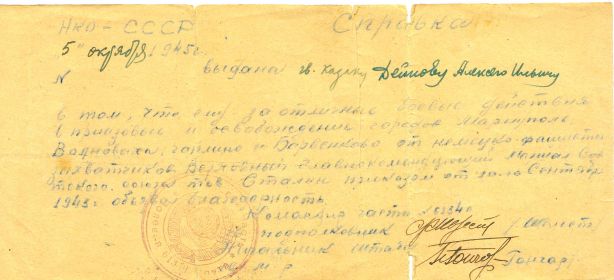 НКО - СССР Справка
5" октября 1945 г.
N выдана гв. казаку Дейнову Алексею Ильичу
в том, что ему за отличные боевые действия
в Приазовье и освобождение городов Мариуполь
Волноваха, и от немецко-фашистс
захватчиков Верховный Главнокомандующий Маршал Сов
етского союза тов. Сталин приказом от сентяб
1943 г объявил благодарность.
Командир части
подполковник
Начальник штаба